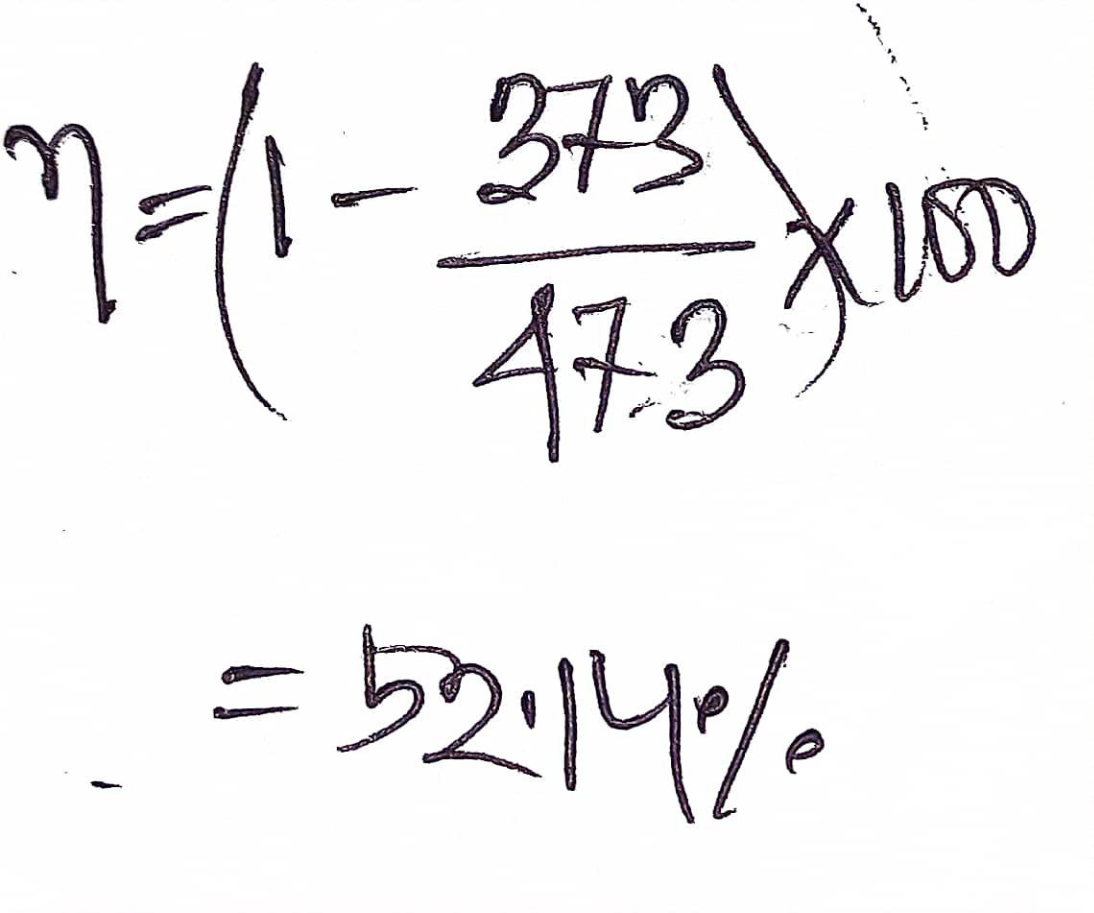 η = (1 - 373/473) × 100
= 52.14%